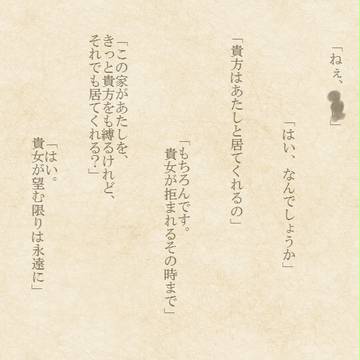 「ねぇ、」
「はい、なんでしょうか」
「貴方はあたしと居てくれるの」
「もちろんです。
貴女が拒まれるその時まで」
「この家があたしを、
きっと貴方をも縛るけれど、
それでも居てくれる?」
「はい。
貴女が望む限りは永遠に」